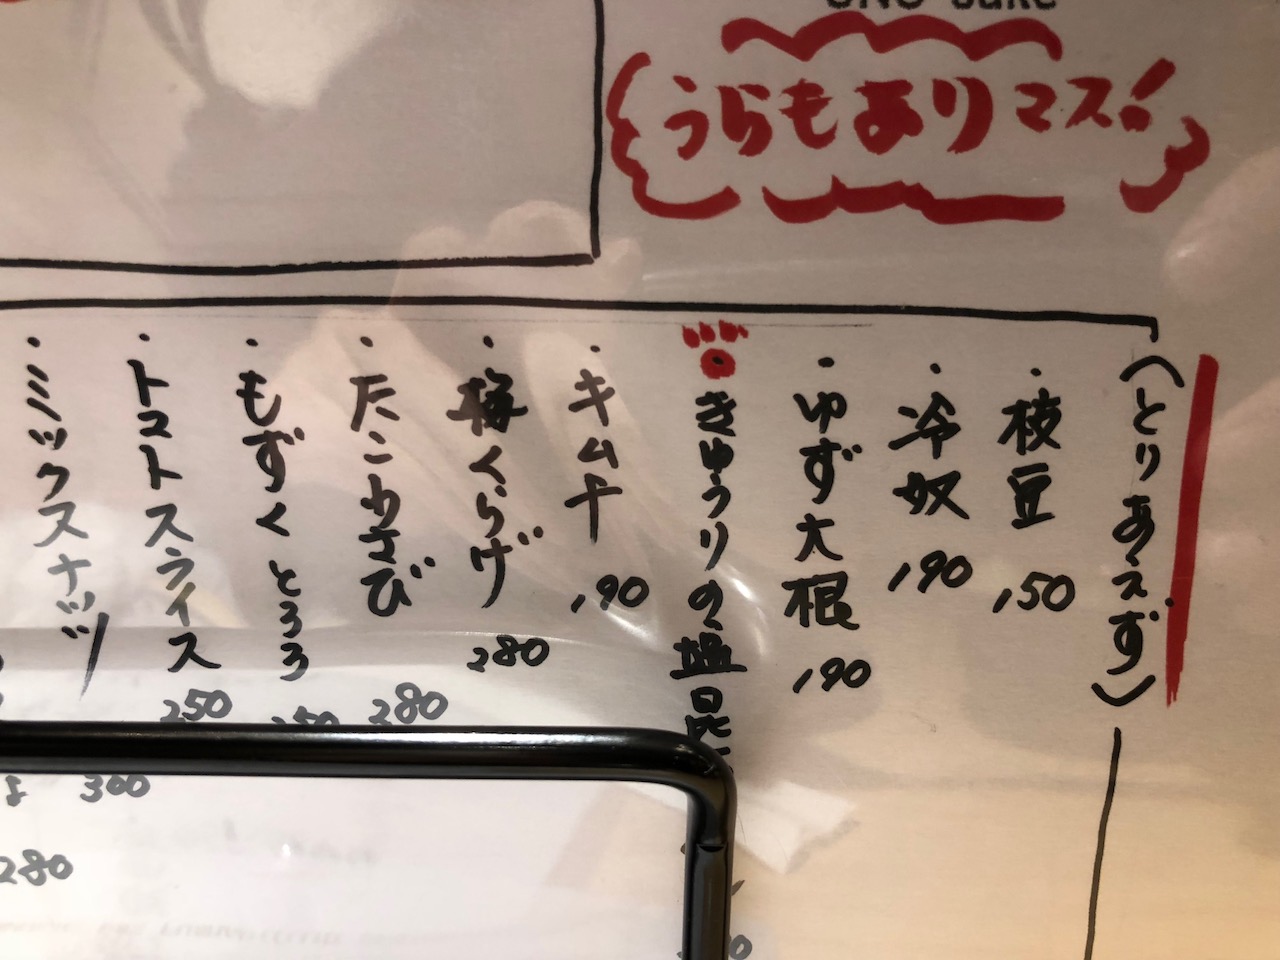 うらもありマス!
(とりあえず)
・枝豆 150
・冷奴 190
・ゆず大根 190
・きゅうりの塩昆
・キムチ 190
・梅くらげ 280
・たこわさび 280
・もずくとろろ 250
・トマトスライス 250
・ミックスナッツ
300
280